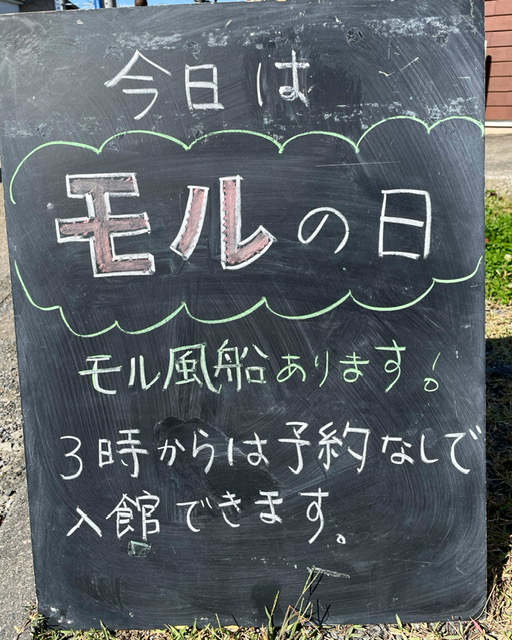 今日は
モルの日
モル風船あります。
3時からは予約なしで
入館できます。